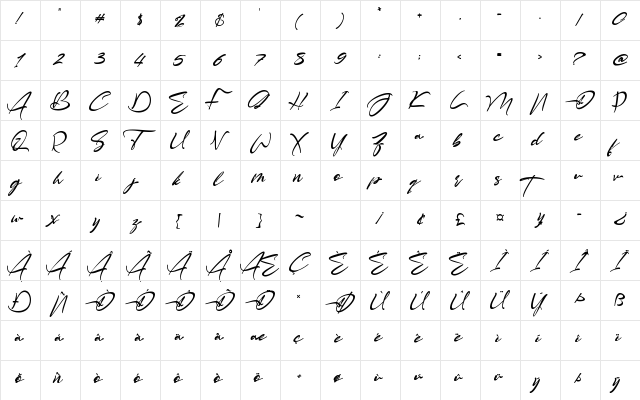 ! " # $ % & ' ( ) * + , - . / 0
1 2 3 4 5 6 7 8 9 : ; < = > ? @
A B C D E F G H I J K L M N O P
Q R S T U V W X Y Z a b c d e f
g h i j k l m n o p q r s t u v
w x y z [ | ] ~ ¡ ¢ £ ¤ ¥ - ¿
À Á Â Ã Ä Å Æ Ç È É Ê Ë Ì Í Î Ï
Ð Ñ Ò Ó Ô Õ Ö × Ø Ù Ú Û Ü Ý Þ ß
à á â ã ä å æ ç è é ê ë ì í î ï
ð ñ ò ó ô õ ö ÷ ø ù ú û ü ý þ ÿ